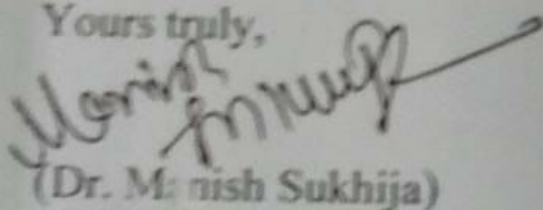 Yours truly,
Manish
(Dr. Manish Sukhija)